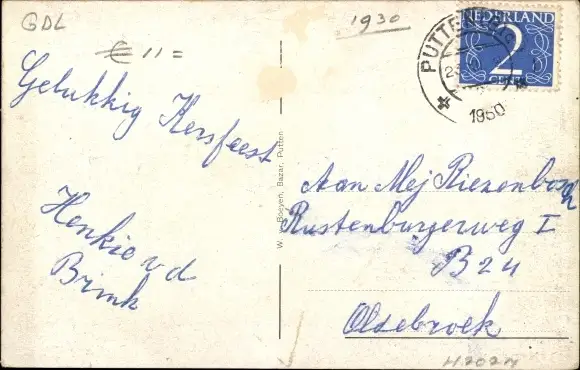 GDL
€ 11 =
1930
NEDERLAND
2
CENT
PUTTEN
1950
Gelukkig Kersfeest
Henkie v d
Brink
W. v. Boeyen, Bazar, Putten
Aan Mej Riezenbosch
Rustenburgerweg I
B 24
Olsebroek